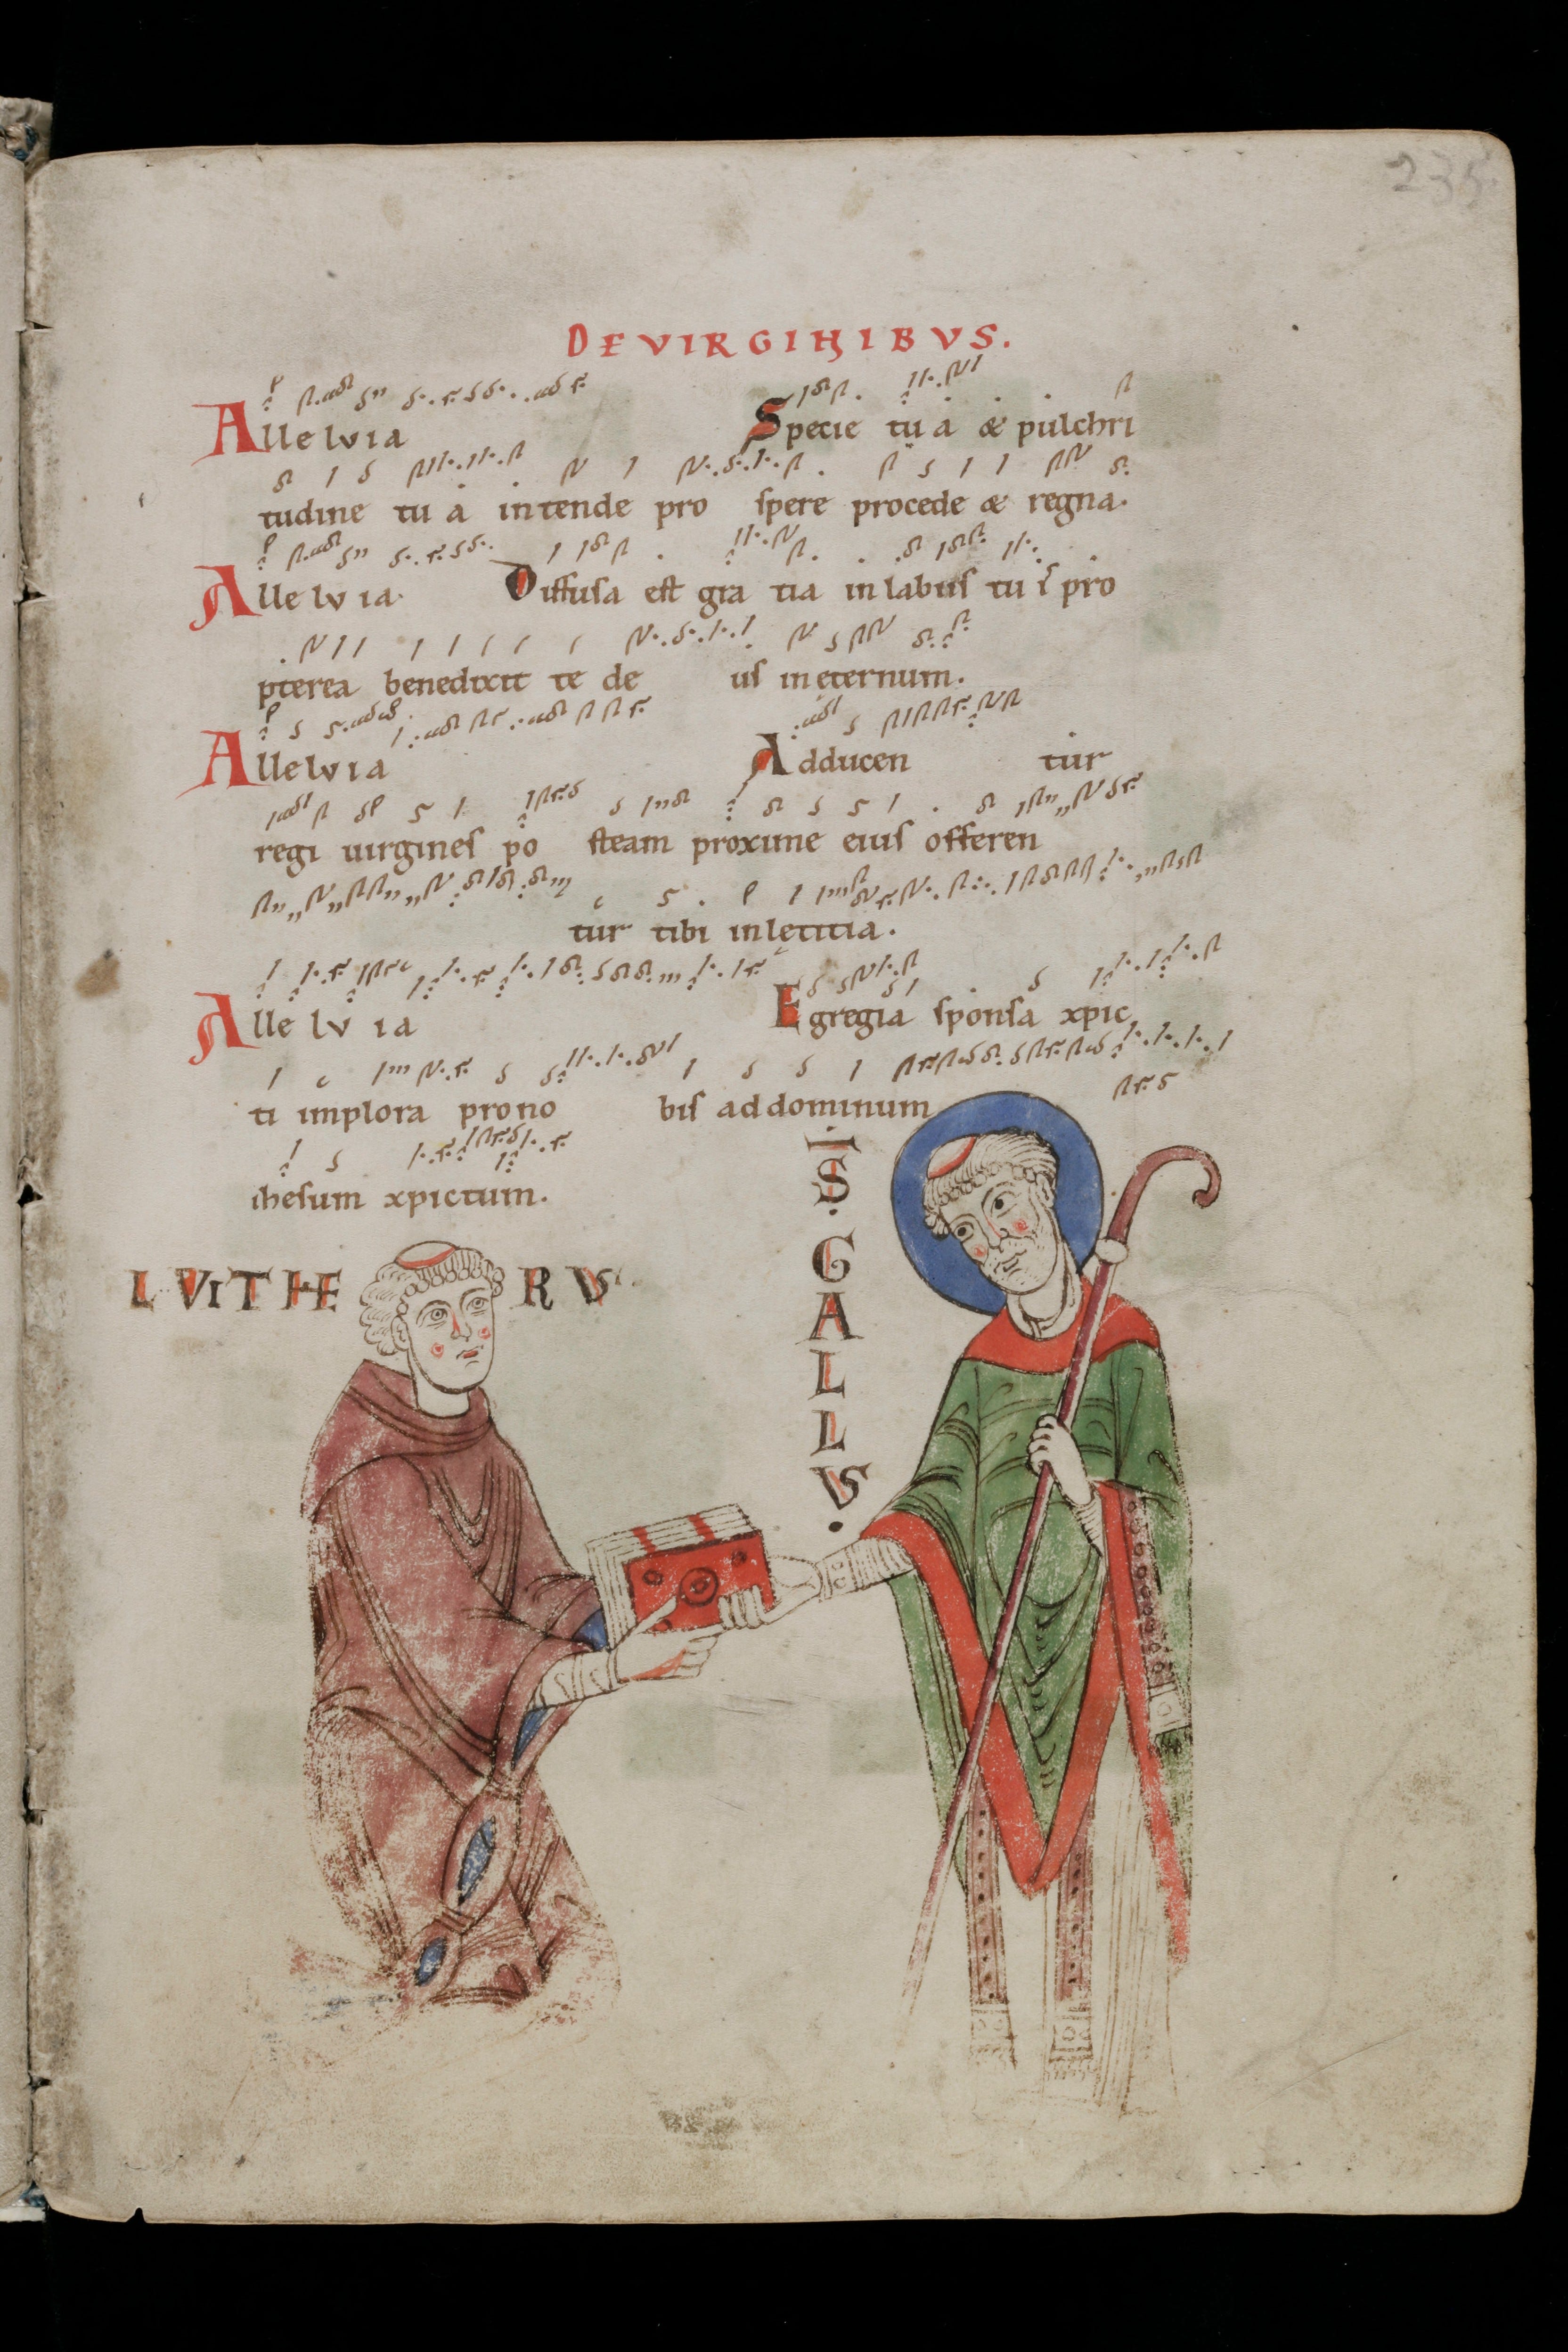 235
DE VIRGINIBVS.
Allelvia Specie tu a & pulchri
tudine tu a intende pro spere procede & regna.
Allelv ia. Diffusa est gra tia in labiis tu is pro
pterea benedixit te de us in eternum.
Allelvia Adducen tur
regi uirgines po steam proxime eius offeren
tur tibi in letitia.
Allelv ia Egregia sponsa xpic
ti implora pro no bis ad dominum
ihesum xpictum.
LVITHE RVS
·I·
S.
GALLVS.